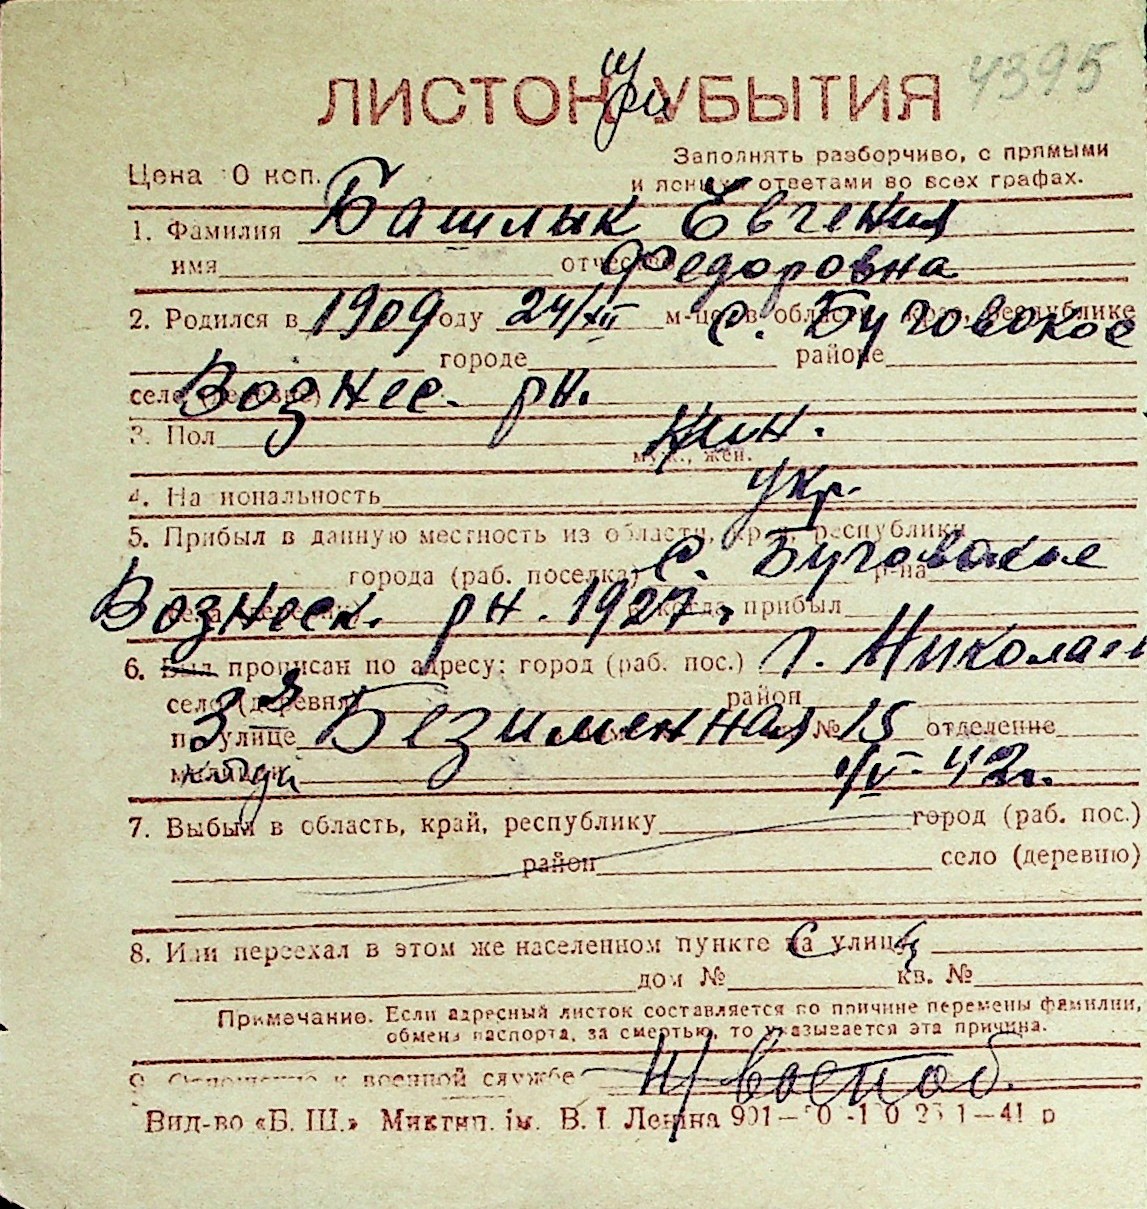 4395
ЛИСТОК при УБЫТИЯ
Цена 10 коп.
Заполнять разборчиво, с прямыми
и ясными ответами во всех графах.
1. Фамилия Башлык Евгения
имя отчество Федоровна
2. Родился в 1909 году 24/XII м-це в области, крае, республике с. Буговское
городе районе
село (деревне) Вознес. рн.
3. Пол жин.
муж., жен.
4. Национальность укр.
5. Прибыл в данную местность из области, края, республики
города (раб. поселка) р-на с. Буговское
Вознеск. рн. 1927 г. когда прибыл
6. Был прописан по адресу: город (раб. пос.) г. Николаев
село (деревня) район
по улице 3я Безименная № 15 отделение
милиции 1/IV-42г.
7. Выбыл в область, край, республику город (раб. пос.)
район село (деревню)
8. Или переехал в этом же населенном пункте на улицу
дом № кв. №
Примечание. Если адресный листок составляется по причине перемены фамилии,
обмена паспорта, за смертью, то указывается эта причина.
9. Отношение к военной службе н/воепоб.
Вид-во «Б. Ш.» Миктип. ім. В. І. Леніна